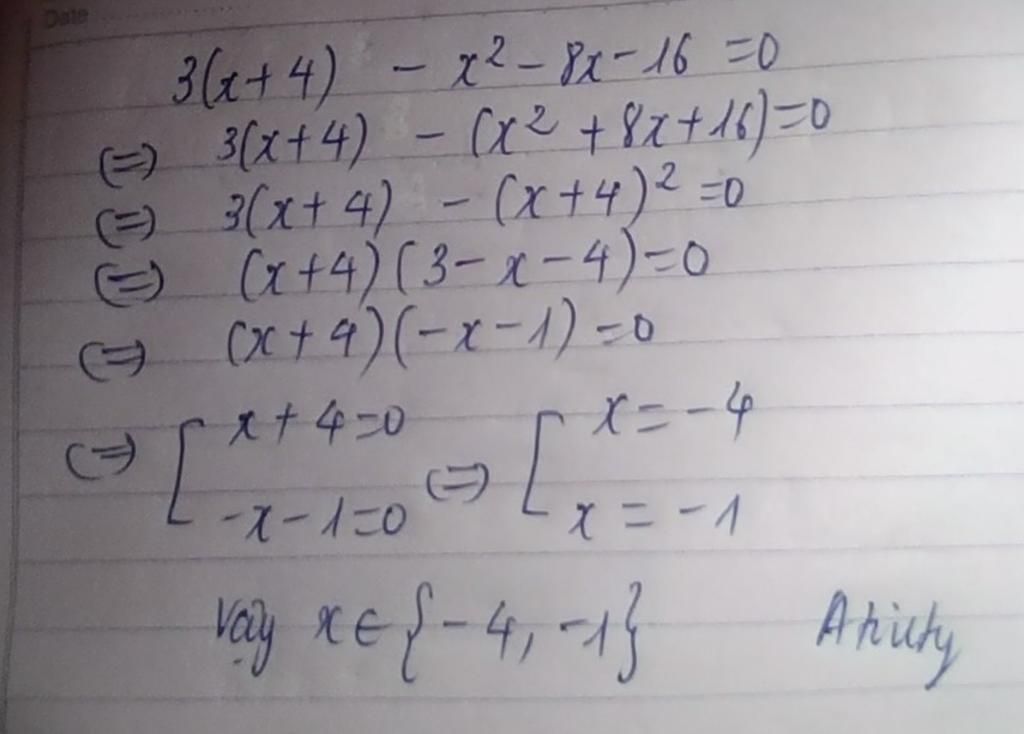 Date
3(x+4) - x² - 8x - 16 = 0
(=) 3(x+4) - (x² + 8x + 16) = 0
(=) 3(x+4) - (x+4)² = 0
(=) (x+4)(3-x-4) = 0
(=) (x+4)(-x-1) = 0
(=) [ x+4=0 (=) [ x = -4
-x-1=0 x = -1
Vậy x ∈ {-4, -1}